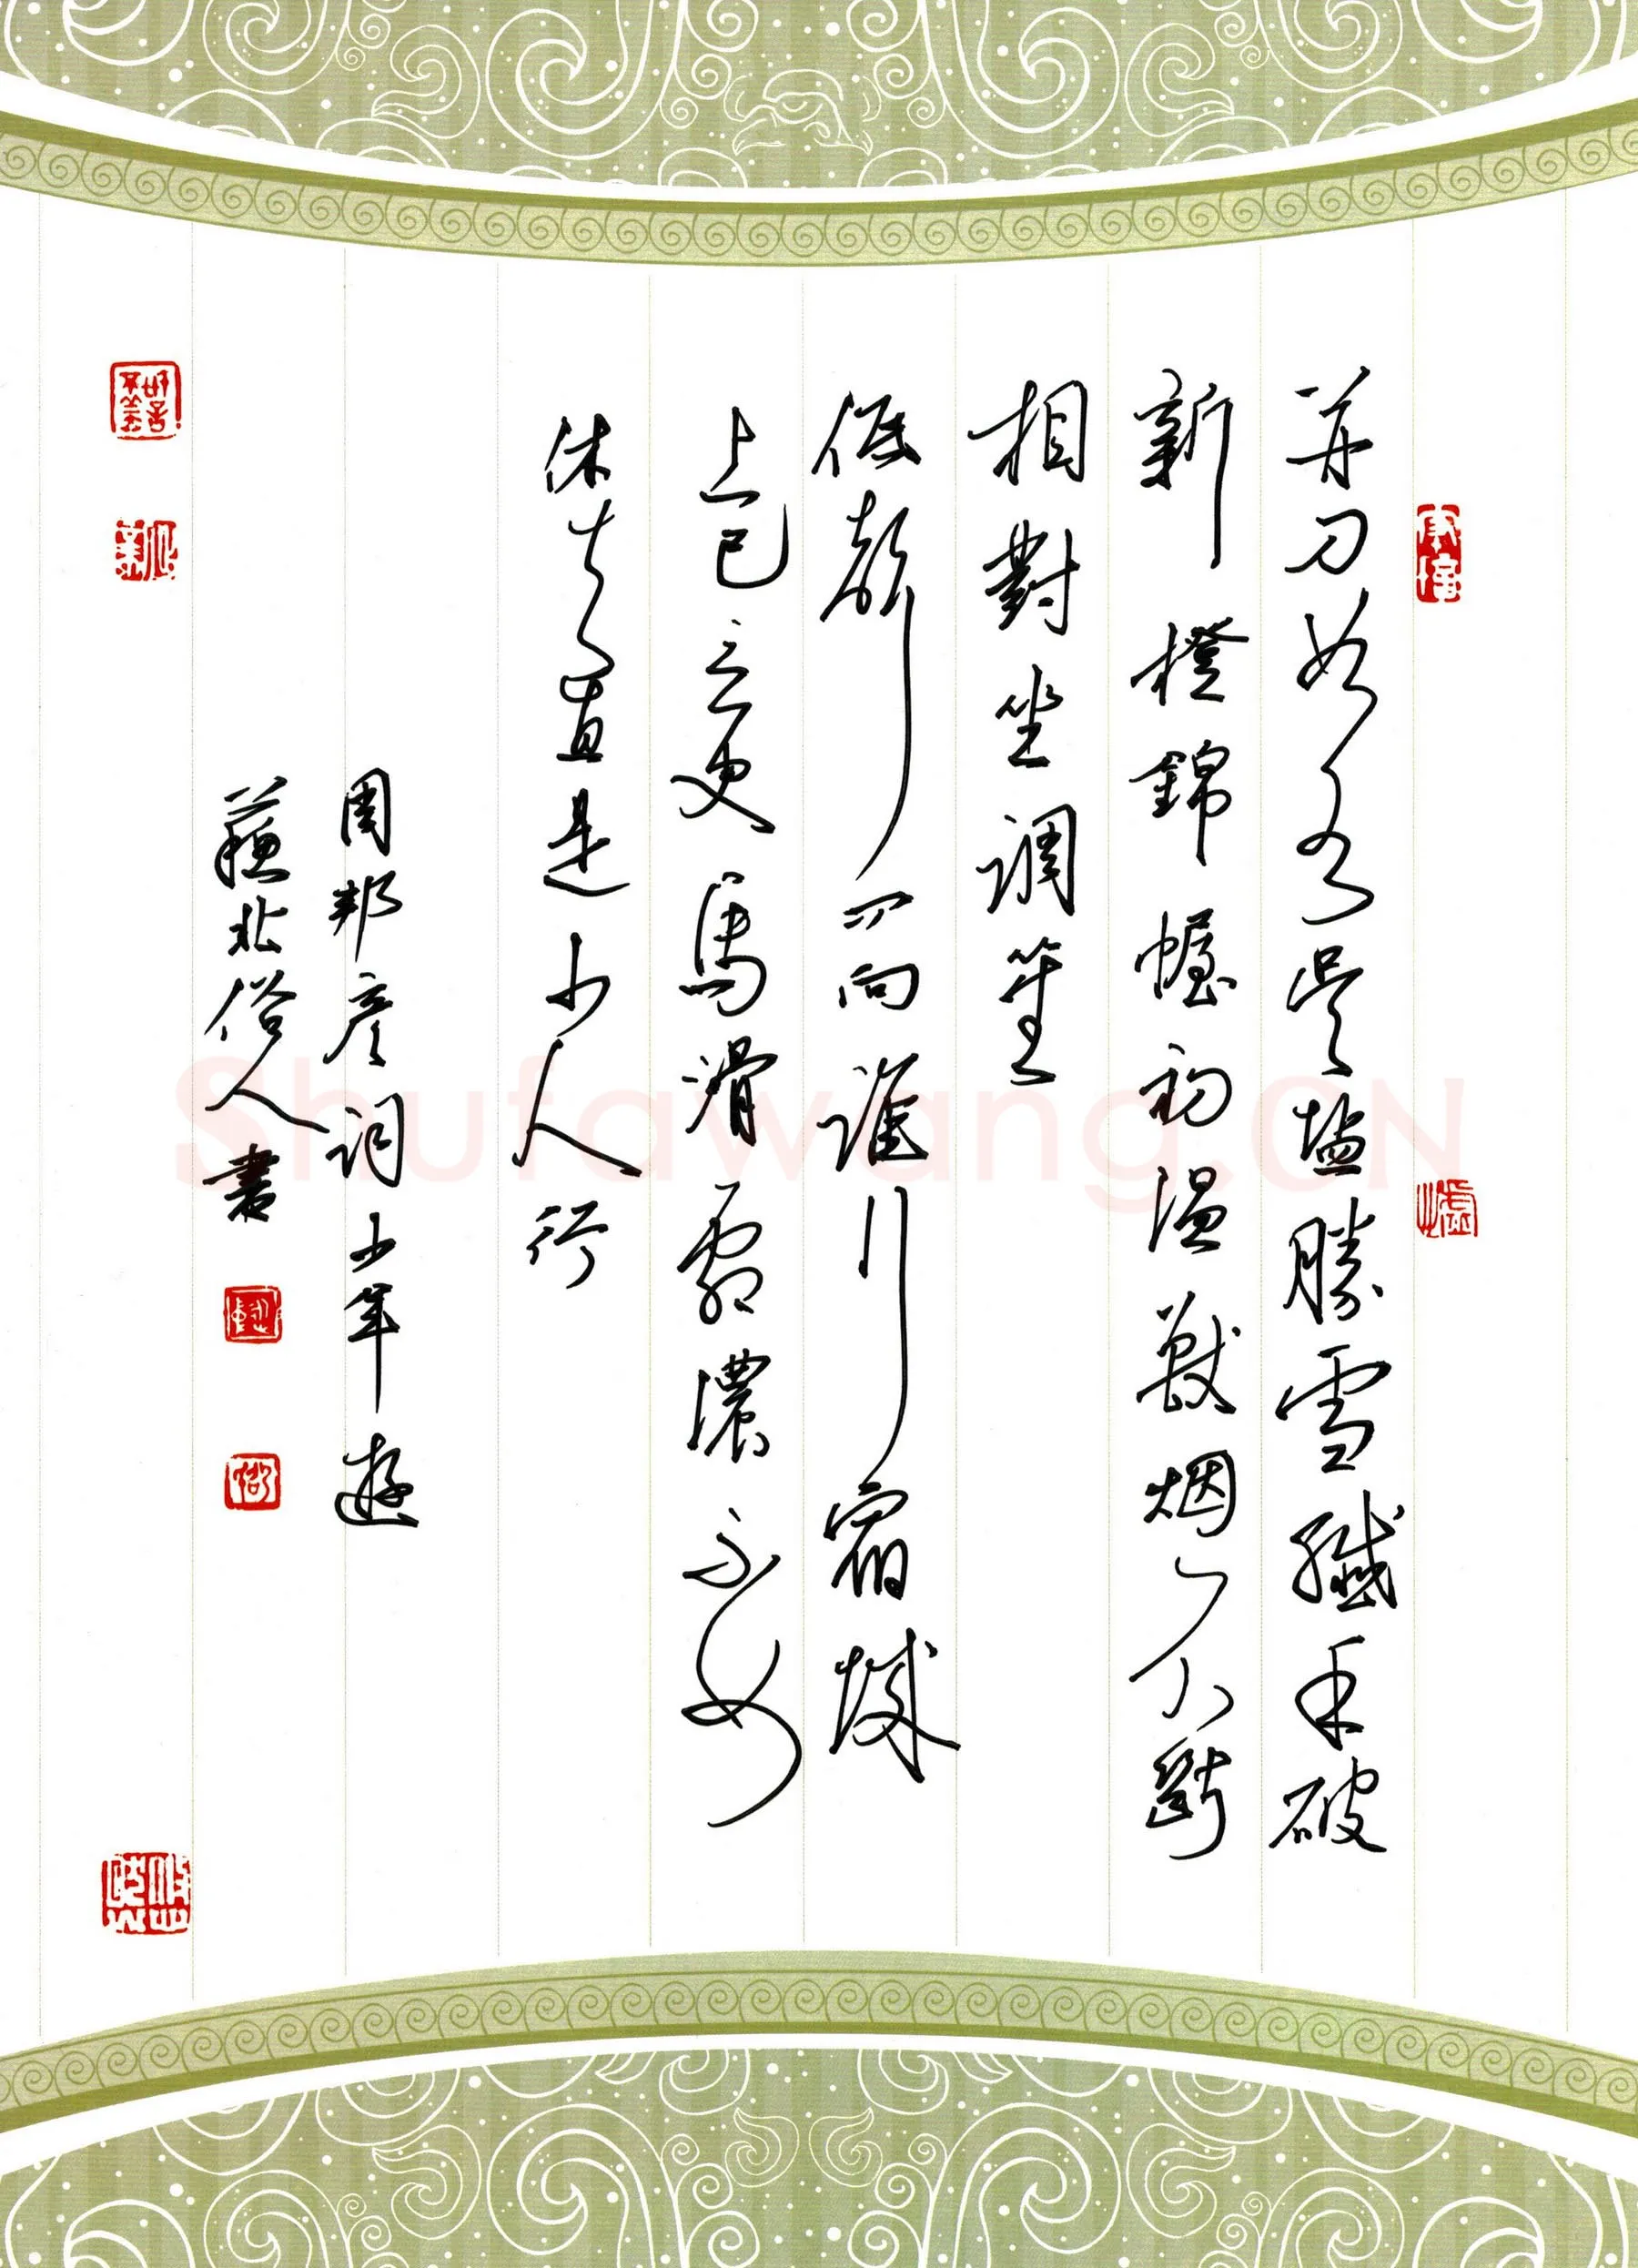 并刀如水吴塩勝雪纖手破
新橙錦幄初温獸烟不斷
相對坐調笙
低聲問向誰行宿城
上已三更馬滑霜濃不如
休去直是少人行
周邦彦詞少年遊
蘇北俗人書
Shufawang.CN